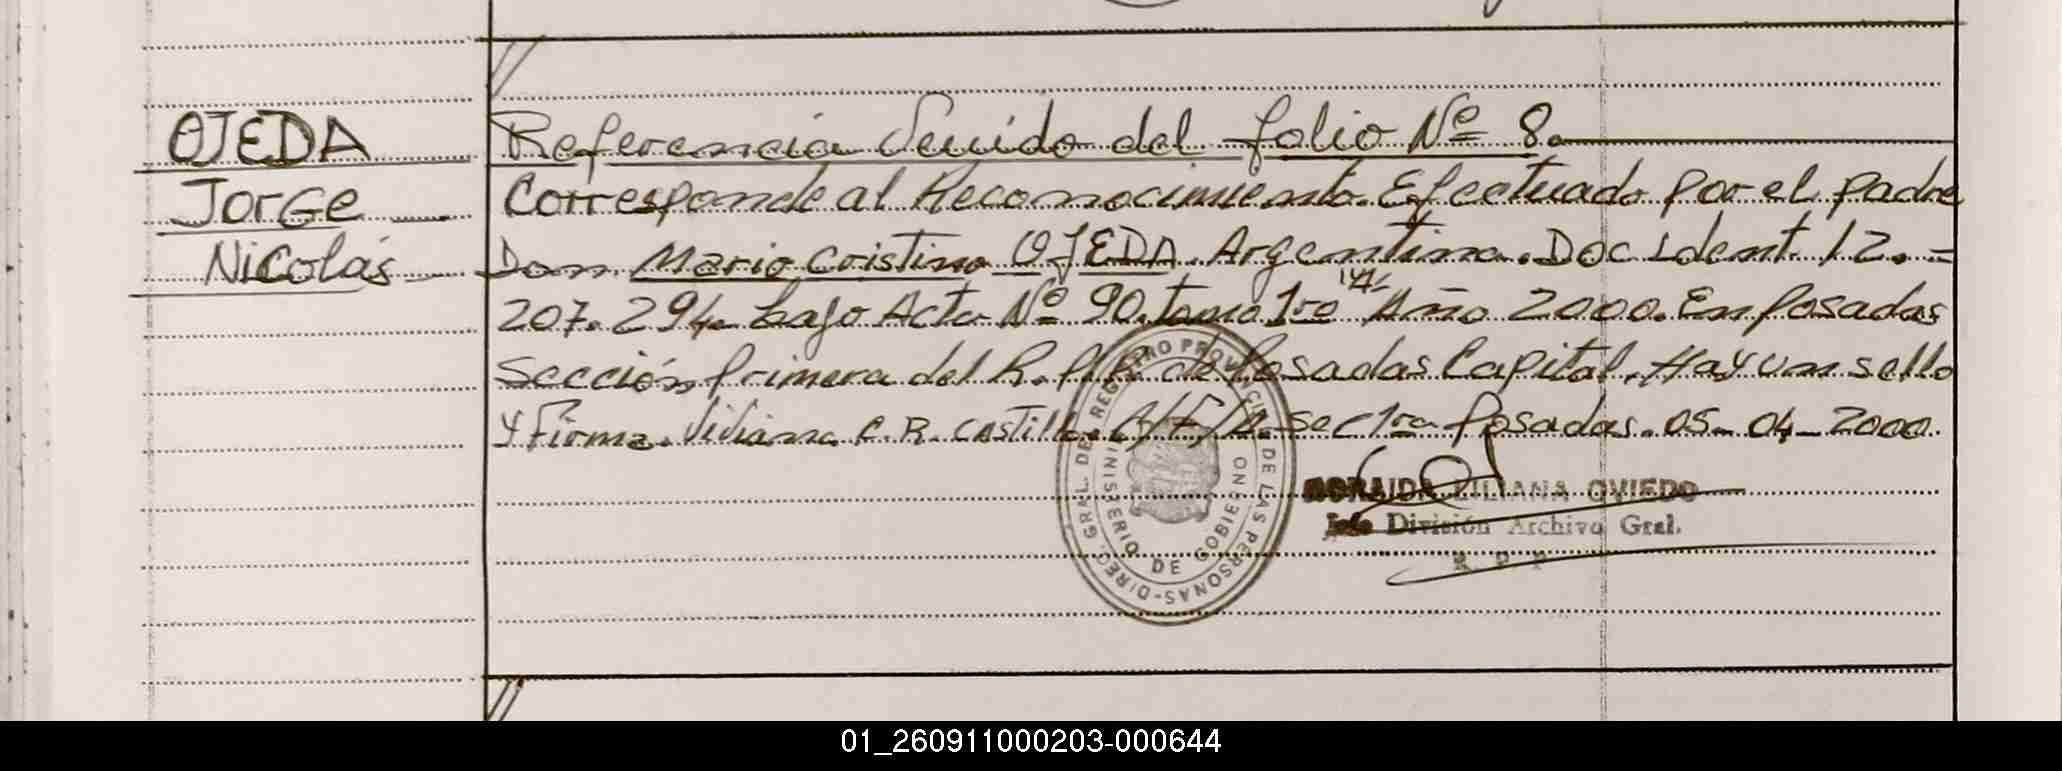 OJEDA
Jorge
Nicolás
Referencia Venido del folio Nº 8.
Corresponde al Reconocimiento. Efectuado por el padre
Don Mario Cristino OJEDA. Argentino. Doc Ident. 12.=
207.294. bajo Acta Nº 90. tomo 1ro Año 2000. En Posadas
Sección Primera del R.P.P. de Posadas Capital. Hay un sello
y firma. Viviana C.R. Castillo. Sec 1ra Posadas. 05-04-2000.
DIREC. GRAL. DEL REGISTRO PROVINCIAL DE LAS PERSONAS
MINISTERIO DE GOBIERNO
LILIANA OVIEDO
Jefe División Archivo Gral.
R P P
01_260911000203-000644